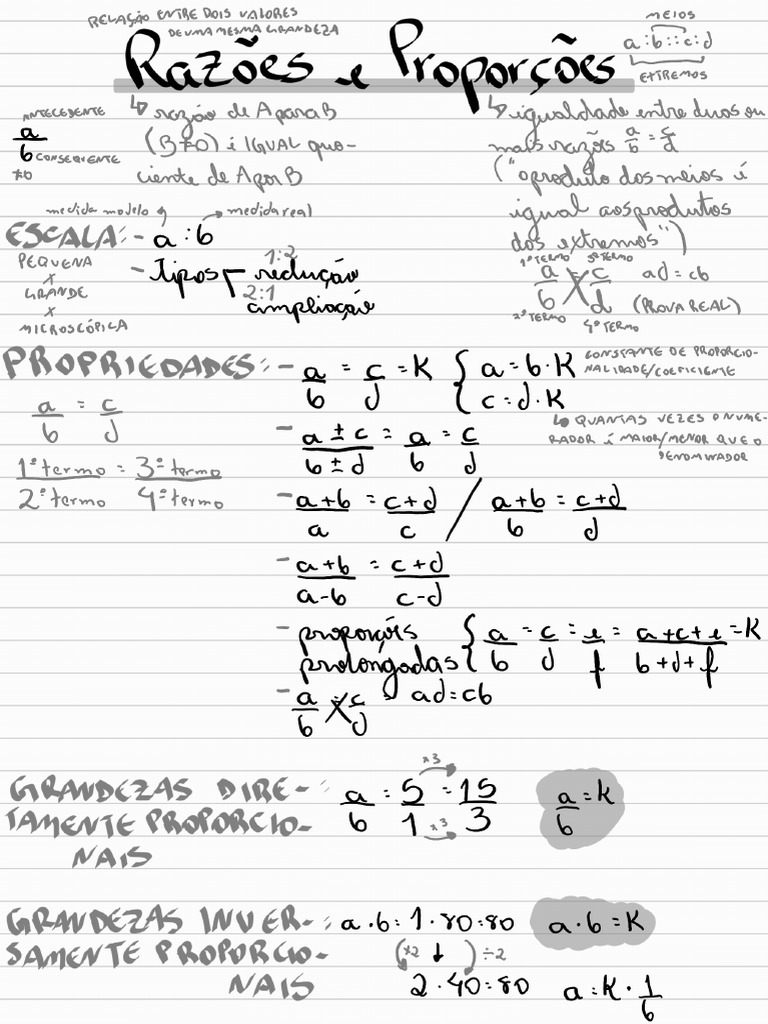 RELAÇÃO ENTRE DOIS VALORES
DE UMA MESMA GRANDEZA
Razões e Proporções
MEIOS
a:b::c:d
EXTREMOS
ANTECEDENTE
a/b CONSEQUENTE
≠0
↳ razão de A para B
(B≠0) é IGUAL quo-
ciente de A por B
↳ igualdade entre duas ou
mais razões a/b = c/d
("o produto dos meios é
igual aos produtos
dos extremos")
1º TERMO 3º TERMO
a/b = c/d ad = cb
(PROVA REAL)
2º TERMO 4º TERMO
medida modelo medida real
ESCALA: - a : b
PEQUENA
x
GRANDE
x
MICROSCÓPICA
- Tipos 1:2 redução
2:1 ampliação
PROPRIEDADES: - a/b = c/d = K { a = b·K
c = d·K
CONSTANTE DE PROPORCIO-
NALIDADE/COEFICIENTE
↳ QUANTAS VEZES O NUME-
RADOR É MAIOR/MENOR QUE O
DENOMINADOR
a/b = c/d
1º termo = 3º termo
2º termo 4º termo
- a ± c / b ± d = a/b = c/d
- a+b / a = c+d / c / a+b / b = c+d / d
- a+b / a-b = c+d / c-d
- proporções
prolongadas { a/b = c/d = e/f = a+c+e / b+d+f = K
- a/b = c/d - ad = cb
GRANDEZAS DIRE-: a/b = 5/1 = 15/3 a/b = K
x3
x3
TAMENTE PROPORCIO-
NAIS
GRANDEZAS INVER-: a·b = 1·80 = 80 a·b = K
SAMENTE PROPORCIO-
(x2 ↓ ) ÷2
NAIS 2·40 = 80 a = K · 1/b